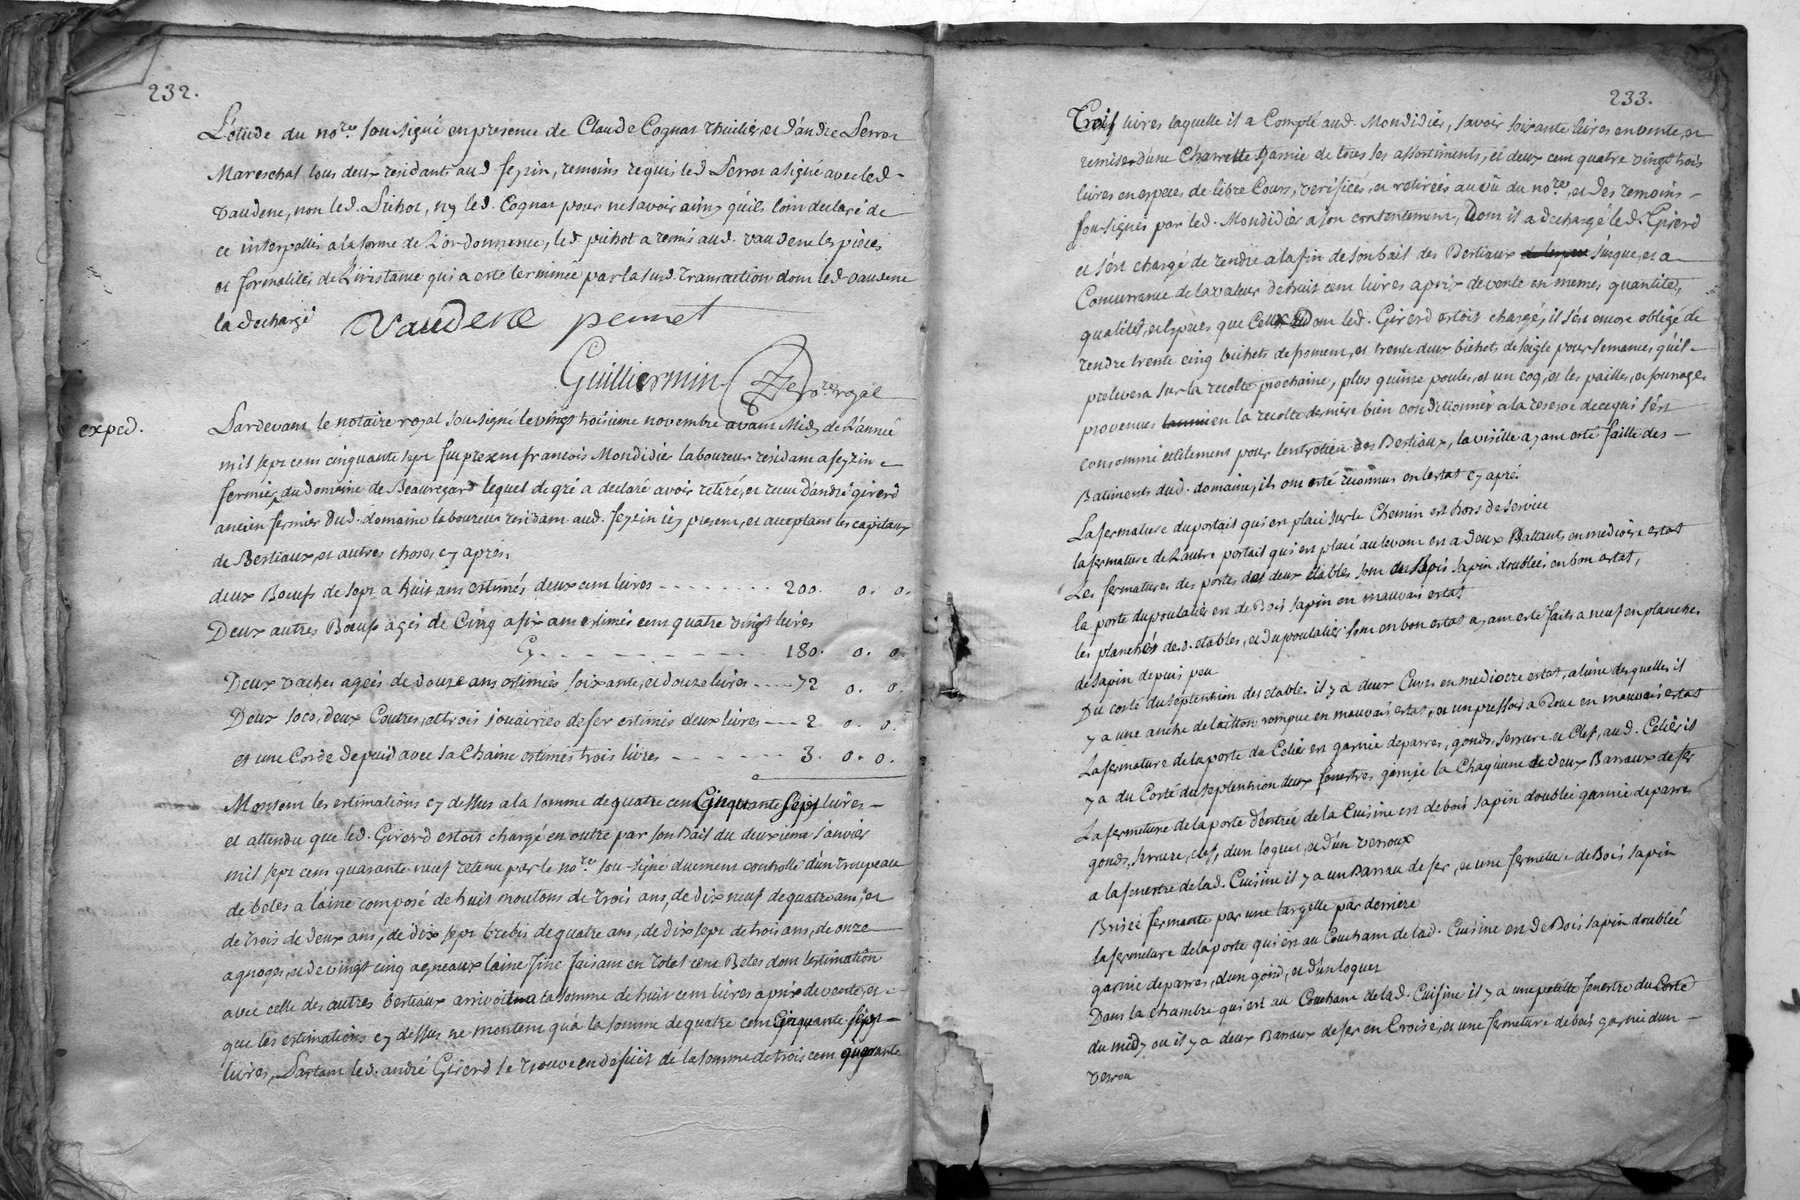 232.
L'étude du no.re sousigné en presence de Claude Cognat thuilier, et d'andré perrot
Mareschal tous deux residants aud feyzin, temoins requis led perrot a signé avec led
vaudene, non led. pichot, ny led. Cognat pour ne savoir ainsy qu'ils l'ont declaré de
ce interpellés a la forme de L'ordonnence, led pichot a remis aud. vaudene les pieces
et formalités de L'instance qui a esté terminée par la susd. transaction dont led vaudene
la dechargé Vaudene pernet
Guilliermin no.re royal
exped.
Pardevant le notaire royal sousigné le vingt troisieme novembre avant Midy de L'année
mil sept cent cinquante sept fut present francois Mondidier laboureur residant a feyzin
fermier du Domaine de Beauregard lequel de gré a declaré avoir retiré, et receu d'andré girerd
ancien fermier dud. domaine laboureur residant aud. feyzin icy present, et acceptant les capitaux
de Bestiaux, et autres choses cy aprés.
deux Boeufs de sept a huit ans estimés deux cent livres - - - - - - 200. 0. 0.
Deux autres Boeufs agés de Cinq a six ans estimés cent quatre vingt livres
Cy - - - - - - - - 180. 0. 0.
Deux vaches agées de douze ans estimées soixante, et douze livres - - - 72 0. 0.
Deux socs, deux Coutres, et trois jouaires de fer estimés deux livres - - - 2 0. 0.
et une Corde de puid avec sa Chaine estimés trois livres - - - - - - 3. 0. 0.
Montent les estimations cy dessus a la somme de quatre cent Cinquante sept livres -
et attendu que led. Girerd estoit chargé en outre par son Bail du deuxième Janvier
mil sept cent quarante neuf retenu par le no.re sousigné duement controllé d'un troupeau
de betes a laine composé de huit moutons de trois ans, de dix neuf de quatre ans, et
de trois de deux ans, de dix sept brebis de quatre ans, de dix sept de trois ans, de onze
agnoges, et de vingt cinq agneaux laine fine faisant en totet cent Betes dont l'estimation
avec celle des autres bestiaux arrivoit a la somme de huit cent livres a prix de vente, et
que les estimations cy dessus ne montent qu'a la somme de quatre cent Cinquante sept
livres, Partant led. andré Girerd se trouve en deficit de la somme de trois cent quarante
233.
Trois livres laquelle il a Compté aud. Mondidier, savoir soixante livres en vente, et
remise d'une Charrette garnie de tous ses assortiments, et deux cent quatre vingt trois
livres en especes de libre Cours, verifiées, et retirées au vû du no.re, et des temoins
sousignés par led. Mondidier a son contentement, Dont il a dechargé led. Girerd
et s'est chargé de rendre a la fin de son bail des Bestiaux susque, et a
Concurrence de la valeur de huit cent livres a prix de vente en memes quantités,
qualités, et especes que Ceux Dont led. Girerd estoit chargé, il s'est encore obligé de
rendre trente cinq bichets de froment, et trente deux bichets de seigle pour semences, qu'il
prelevera sur la recolte prochaine, plus quinze poules, et un coq, et les pailles, et fourages
provenues en la recolte derniere bien conditionnés a la reserve de ce qui s'est
consommé utilement pour l'entretien des Bestiaux, la visitte ayant esté faitte des
Batiments dud. domaine, ils ont esté reconnus en l'estat cy aprés
La fermature du portail qui est placé sur le Chemin est hors de service
la fermature de L'autre portail qui est placé au levant est a deux Battants en mediocre estat
Les fermatures des portes des deux etables sont de bois sapin doublées en bon estat,
la porte du poulalier est de Bois sapin en mauvais estat
les planchés desd. etables, et du poulalier sont en bon estat ayant esté faits a neuf en planches
de sapin depuis peu
Du costé du septention des etables il y a deux Cuves en mediocre estat, a l'une desquelles il
y a une anche de laitton rompue en mauvais estat, et un pressoir a Roue en mauvais estat
La fermature de la porte du Celier est garnie de parres, gonds, serrure et Clef, aud. Celier il
y a du Costé du septention deux fenestres garnie la Chaqu'une de deux Barraux de fer
La fermeture de la porte d'entrée de la Cuisine est de bois sapin doublée garnie de parres
gonds, serrure, clef, d'un loquet, et d'un verroux
a la fenestre de lad. Cuisine il y a un Barrau de fer, et une fermeture de Bois sapin
Brisée fermante par une targette par derriere
la fermeture de la porte qui est au Couchant de lad. Cuisine est de Bois sapin doublée
garnie de parres, d'un gond, et d'un loquet
Dans la chambre qui est au Couchant de lad. Cuisine il y a une petitte fenestre du Costé
du midy ou il y a deux Barraux de fer en Croisé, et une fermeture de bois garnie d'un
verrou